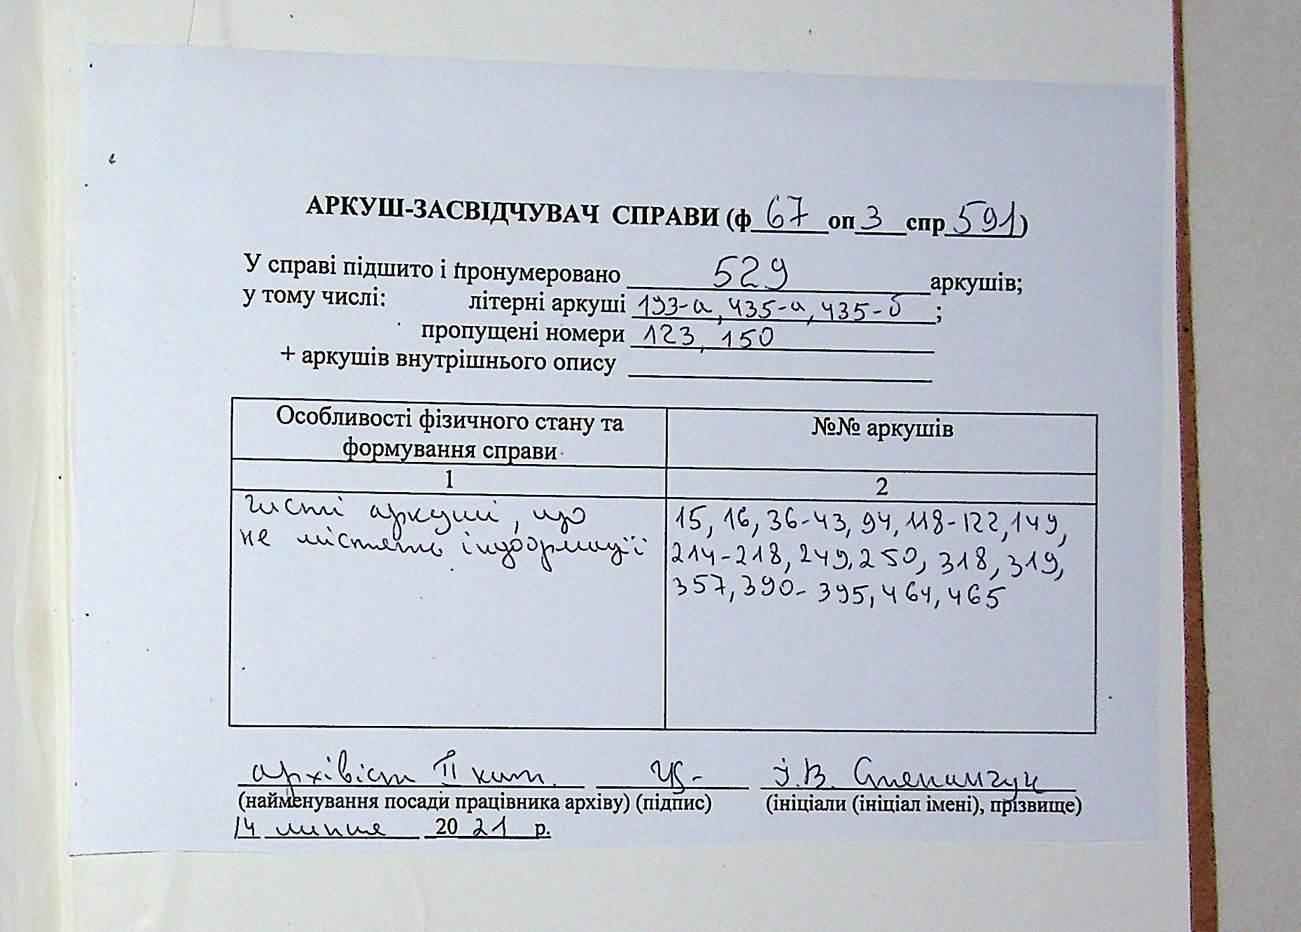 АРКУШ-ЗАСВІДЧУВАЧ СПРАВИ (ф 67 оп 3 спр 591)
У справі підшито і пронумеровано 529 аркушів;
у тому числі: літерні аркуші 193-а, 435-а, 435-б ;
пропущені номери 123, 150
+ аркушів внутрішнього опису
Особливості фізичного стану та
формування справи
№№ аркушів
1
2
Чисті аркуші, що
не містять інформації
15, 16, 36-43, 94, 118-122, 149,
214-218, 249, 250, 318, 319,
357, 390-395, 464, 465
архівіст II кат. І.В. Степанчук
(найменування посади працівника архіву) (підпис) (ініціали (ініціал імені), прізвище)
14 липня 2021 р.